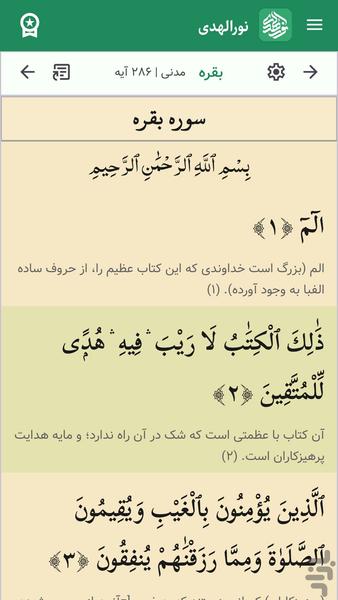 نورالهدی
بقره
مدنی | ۲۸۶ آیه
سوره بقره
بِسْمِ ٱللَّهِ ٱلرَّحْمَٰنِ ٱلرَّحِيمِ
الٓمٓ ﴿۱﴾
الم (بزرگ است خداوندی که این کتاب عظیم را، از حروف ساده
الفبا به وجود آورده). (۱)
ذَٰلِكَ ٱلْكِتَٰبُ لَا رَيْبَ ۛ فِيهِ ۛ هُدًۭى
لِّلْمُتَّقِينَ ﴿۲﴾
آن کتاب با عظمتی است که شک در آن راه ندارد؛ و مایه هدایت
پرهیزکاران است. (۲)
ٱلَّذِينَ يُؤْمِنُونَ بِٱلْغَيْبِ وَيُقِيمُونَ
ٱلصَّلَوٰةَ وَمِمَّا رَزَقْنَٰهُمْ يُنفِقُونَ ﴿۳﴾
بازار